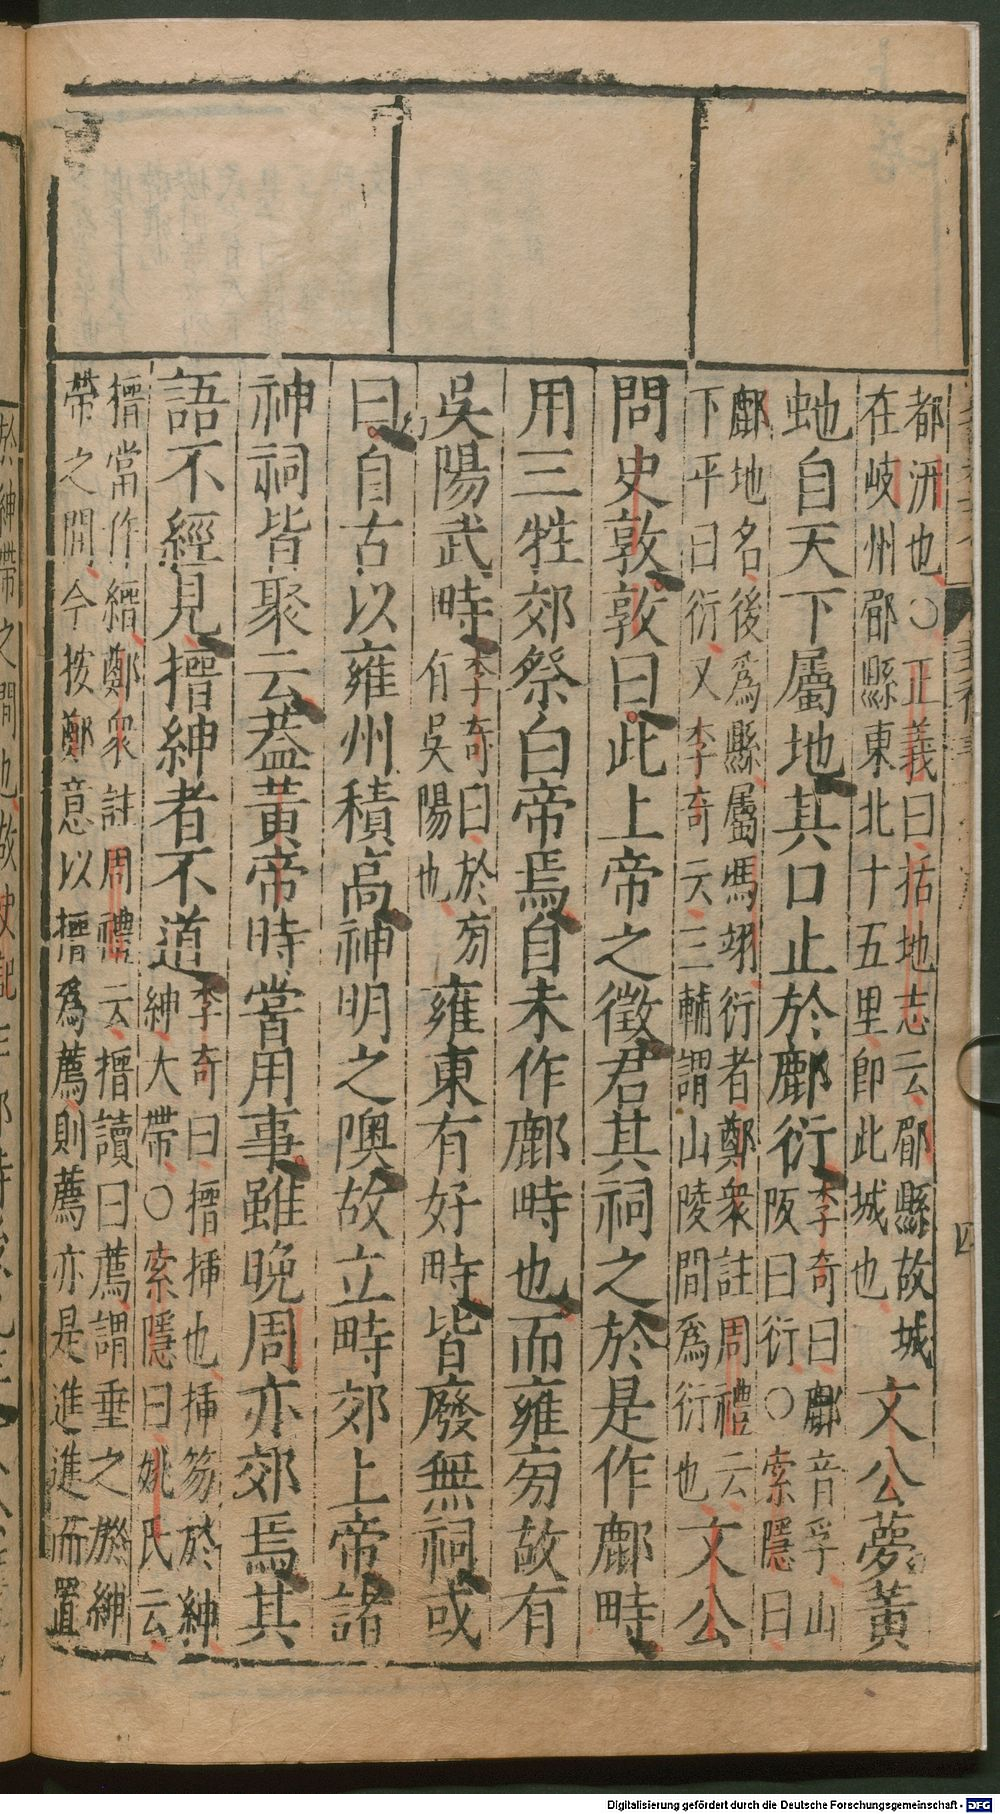 都汧也○正義曰括地志云郿縣故城
在岐州郿縣東北十五里即此城也
文公夢黃
虵自天下屬地其口止於鄜衍
李奇曰鄜音孚山
阪曰衍○索隱曰
鄜地名後爲縣屬馮翊衍者鄭衆註周禮云
下平曰衍又李奇云三輔謂山陵間爲衍也
文公
問史敦敦曰此上帝之徵君其祠之於是作鄜畤
用三牲郊祭白帝焉自未作鄜畤也而雍旁故有
吳陽武畤
李奇曰於旁
有吳陽也
雍東有好畤皆廢無祠或
曰自古以雍州積高神明之隩故立畤郊上帝諸
神祠皆聚云葢黃帝時嘗用事雖晚周亦郊焉其
語不經見搢紳者不道
李奇曰搢插也插笏於紳
紳大帶○索隱曰姚氏云
搢當作縉鄭衆註周禮云搢讀曰薦謂垂之於紳
帶之間今按鄭意以搢爲薦則薦亦是進進而置
四
於紳帶之間也故史記
Digitalisierung gefördert durch die Deutsche Forschungsgemeinschaft - DFG